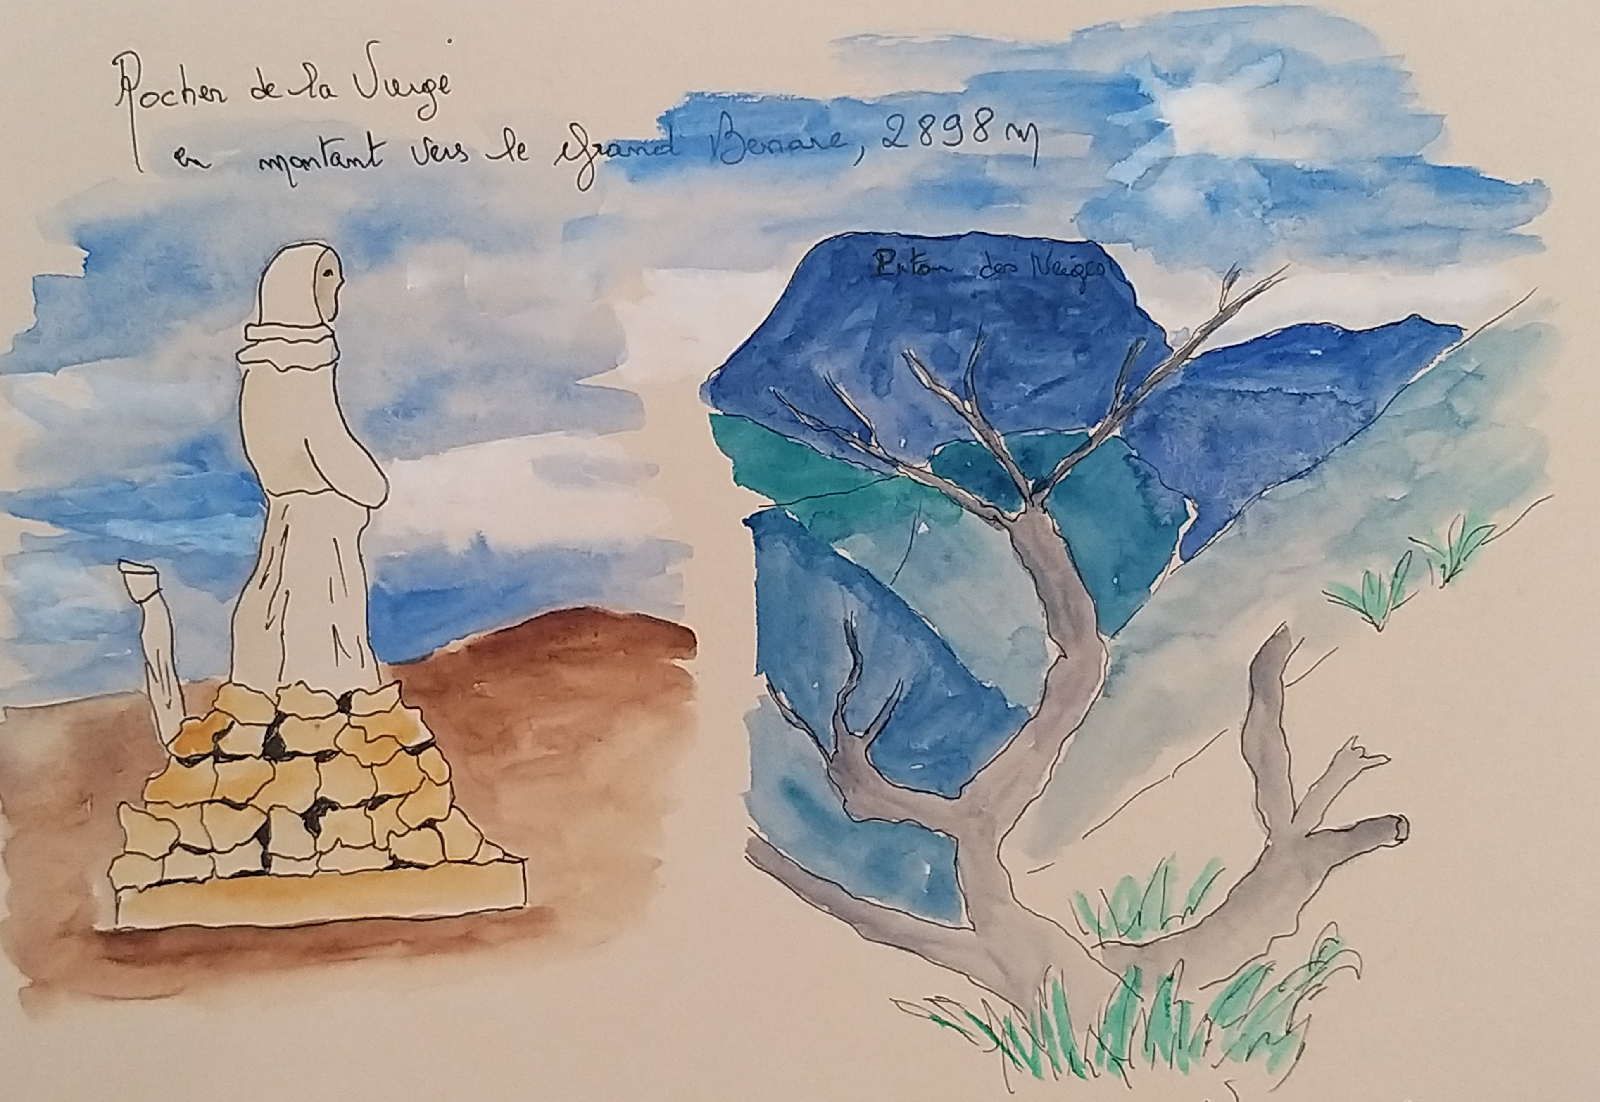 Rocher de la Vierge
en montant vers le Grand Benare, 2898 m
Piton des Neiges